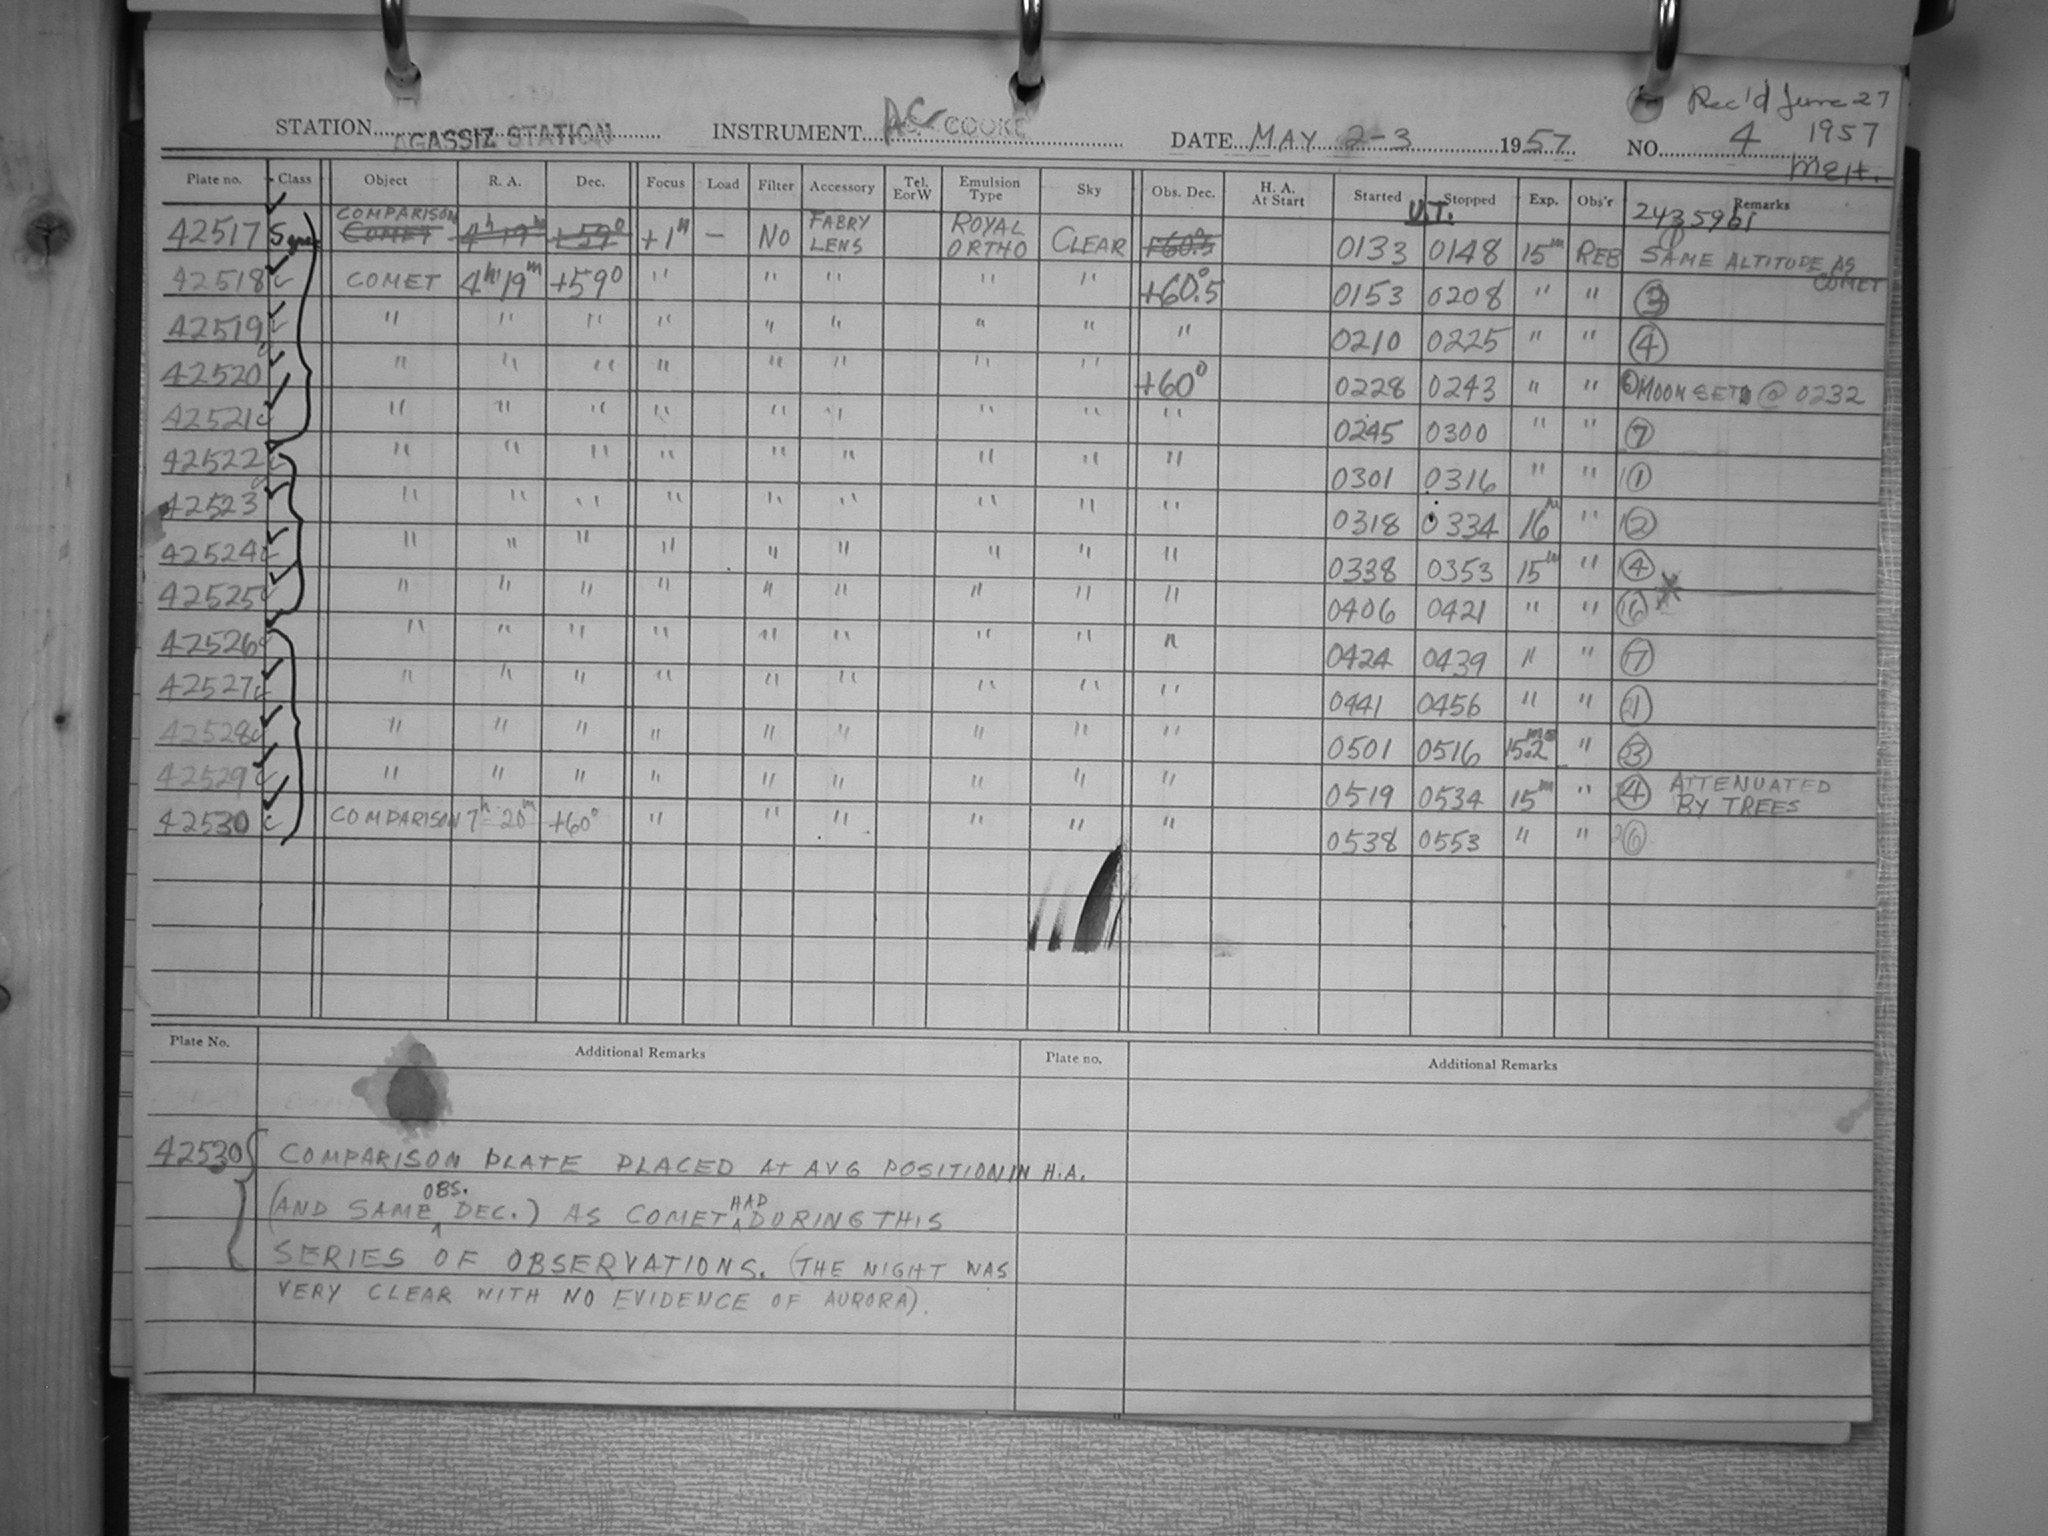 Rec'd June 27
1957
MEH.
STATION AGASSIZ STATION INSTRUMENT AC COOKE DATE MAY 2-3 1957 NO. 4
Plate no. Class Object R. A. Dec. Focus Load Filter Accessory Tel. EorW Emulsion Type Sky Obs. Dec. H. A. At Start Started Stopped Exp. Obs'r Remarks
U.T. 2435961
42517 COMPARISON COMET 4h 19m +59° +1" — NO FABRY LENS ROYAL ORTHO CLEAR +60.5 0133 0148 15m REB SAME ALTITUDE AS COMET
42518 c COMET 4h 19m +59° " " " " " +60.°5 0153 0208 " " 3
42519 c " " " " " " " " " 0210 0225 " " 4
42520 c " " " " " " " " +60° 0228 0243 " " 6 MOON SET @ 0232
42521 c " " " " " " " " " 0245 0300 " " 7
42522 c " " " " " " " " " 0301 0316 " " 11
42523 c " " " " " " " " " 0318 0334 16m " 12
42524 c " " " " " " " " " 0338 0353 15m " 14
42525 c " " " " " " " " " 0406 0421 " " 16
42526 c " " " " " " " " " 0424 0439 " " 17
42527 c " " " " " " " " " 0441 0456 " " 21
42528 c " " " " " " " " " 0501 0516 15.2m " 23
42529 c " " " " " " " " " 0519 0534 15m " 24 ATTENUATED BY TREES
42530 c COMPARISON 7h 20m +60° " " " " " " 0538 0553 " " 26
Plate No. Additional Remarks Plate no. Additional Remarks
42530 COMPARISON PLATE PLACED AT AVG POSITION IN H.A.
(AND SAME OBS. DEC.) AS COMET HAD DURING THIS
SERIES OF OBSERVATIONS. (THE NIGHT WAS
VERY CLEAR WITH NO EVIDENCE OF AURORA).